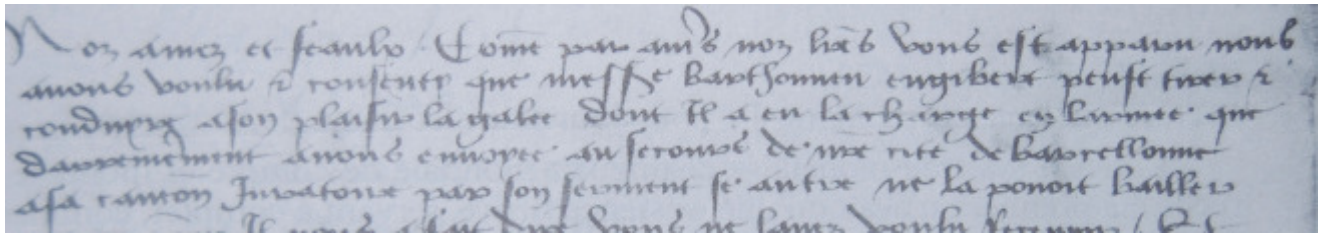 Noz amez et feaulx Come par aucūs noz lrēs vous est apparu nous
auons voulu & consenty que messe Barthommeu engibert peust tirer &
conduyre a son plaisir la galee dont Il a eu la charge en larmee que
derrenierement auons enuoyee au secours de nrē cite de Barcellonne
a sa caucōn Juratoire par son serment se autre ne la pouoit bailler
Il nous a dit que vous ne lauez voulu receuoir Et